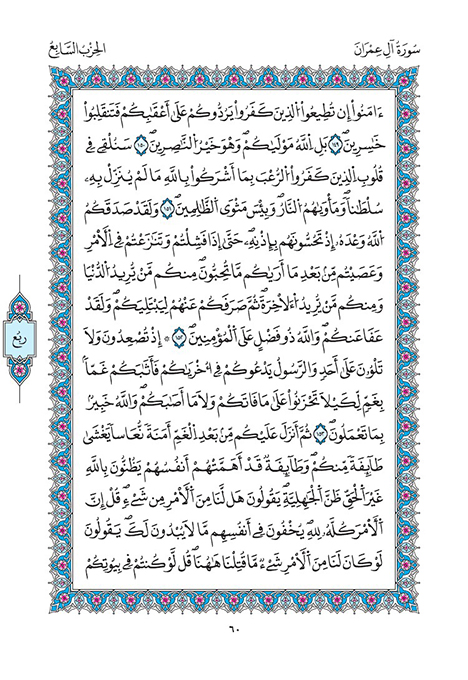 سُورَةُ آلِ عِمْرَانَ
الحِزْبُ السَّابِعُ
ءَامَنُوٓاْ إِن تُطِيعُواْ الذِينَ كَفَرُواْ يَرُدُّوكُمْ عَلَىٰٓ أَعْقَٰبِكُمْ فَتَنقَلِبُواْ
خَٰسِرِينَ ١٤٩ بَلِ اللَّهُ مَوْلَيٰكُمْ وَهُوَ خَيْرُ النَّٰصِرِينَ ١٥٠ سَنُلْقِي فِي
قُلُوبِ الذِينَ كَفَرُواْ الرُّعْبَ بِمَآ أَشْرَكُواْ بِاللَّهِ مَا لَمْ يُنَزِّلْ بِهِۦ
سُلْطَٰناً وَمَأْوَيٰهُمُ النَّارُ وَبِيسَ مَثْوَى الظَّٰلِمِينَ ١٥١ وَلَقَدْ صَدَقَكُمُ
اللَّهُ وَعْدَهُۥٓ إِذْ تَحُسُّونَهُم بِإِذْنِهِۦ حَتَّىٰٓ إِذَا فَشِلْتُمْ وَتَنَٰزَعْتُمْ فِي الْأَمْرِ
وَعَصَيْتُم مِّنۢ بَعْدِ مَآ أَرَيٰكُم مَّا تُحِبُّونَ مِنكُم مَّنْ يُّرِيدُ الدُّنْيَا
وَمِنكُم مَّنْ يُّرِيدُ الْأَخِرَةَ ثُمَّ صَرَفَكُمْ عَنْهُمْ لِيَبْتَلِيَكُمْ وَلَقَدْ
عَفَا عَنكُمْ وَاللَّهُ ذُو فَضْلٍ عَلَى الْمُؤْمِنِينَ ١٥٢ ۞ إِذْ تُصْعِدُونَ وَلَا
تَلْوُۥنَ عَلَىٰٓ أَحَدٍ وَالرَّسُولُ يَدْعُوكُمْ فِيٓ أُخْرَيٰكُمْ فَأَثَٰبَكُمْ غَمّاَۢ
بِغَمٍّ لِّكَيْلَا تَحْزَنُواْ عَلَىٰ مَا فَاتَكُمْ وَلَا مَآ أَصَٰبَكُمْ وَاللَّهُ خَبِيرُۢ
بِمَا تَعْمَلُونَ ١٥٣ ثُمَّ أَنزَلَ عَلَيْكُم مِّنۢ بَعْدِ الْغَمِّ أَمَنَةً نُّعَاساً يَغْشَىٰ
طَآئِفَةً مِّنكُمْ وَطَآئِفَةٌ قَدْ أَهَمَّتْهُمْ أَنفُسُهُمْ يَظُنُّونَ بِاللَّهِ
غَيْرَ الْحَقِّ ظَنَّ الْجَٰهِلِيَّةِ يَقُولُونَ هَل لَّنَا مِنَ الْأَمْرِ مِن شَيْءٍ قُلِ اِنَّ
الْأَمْرَ كُلَّهُۥ لِلهِ يُخْفُونَ فِيٓ أَنفُسِهِم مَّا لَا يُبْدُونَ لَكَ يَقُولُونَ
لَوْ كَانَ لَنَا مِنَ الْأَمْرِ شَيْءٌ مَّا قُتِلْنَا هَٰهُنَا قُل لَّوْ كُنتُمْ فِي بِيُوتِكُمْ
ربع
٦٠